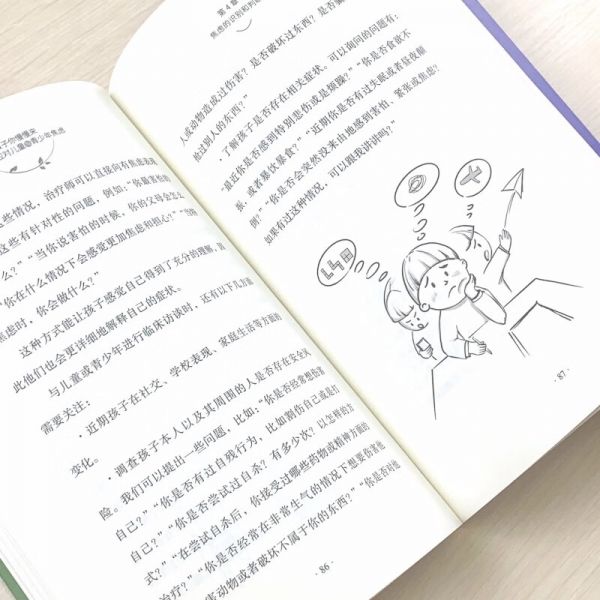 孩子你慢慢来
应对儿童和青少年焦虑
些情况，治疗师可以直接向有焦虑表现
这些有针对性的问题，例如：“你最害怕的
么？”“当你说害怕的时候，你的父母会怎么
“你在什么情况下会感觉更加焦虑和担心？”“当你
焦虑时，你会做什么？”
这种方式能让孩子感觉自己得到了充分的理解，
此他们也会更详细地解释自己的症状。
与儿童或青少年进行临床访谈时，还有以下几方面
需要关注：
·近期孩子在社交、学校表现、家庭生活等方面的
变化。
·调查孩子本人以及其周围的人是否存在安全风
险。我们可以提出一些问题，比如：“你是否经常想伤害
自己？”“你是否有过自残行为，比如割伤自己或是打
自己？”“你是否尝试过自杀？有多少次？以怎样的方
式？”“在尝试自杀后，你接受过哪些药物或精神方面的
治疗？”“你是否经常在非常生气的情况下想要伤害他
害动物或者破坏不属于你的东西？”“你是否对他
·86·
第4章
焦虑的识别和判
人或动物造成过伤害？是否破坏过东西？是否
他过别人的东西？”
·了解孩子是否存在相关症状。可以询问的问题有：
“最近你是否感到特别悲伤或是烦躁？”“你是否食欲不
振，或者暴饮暴食？”“近期你是否有过失眠或者昼夜颠
倒？”“你是否会突然没来由地感到害怕、紧张或焦虑？
如果有过这种情况，可以跟我讲讲吗？”
·87·